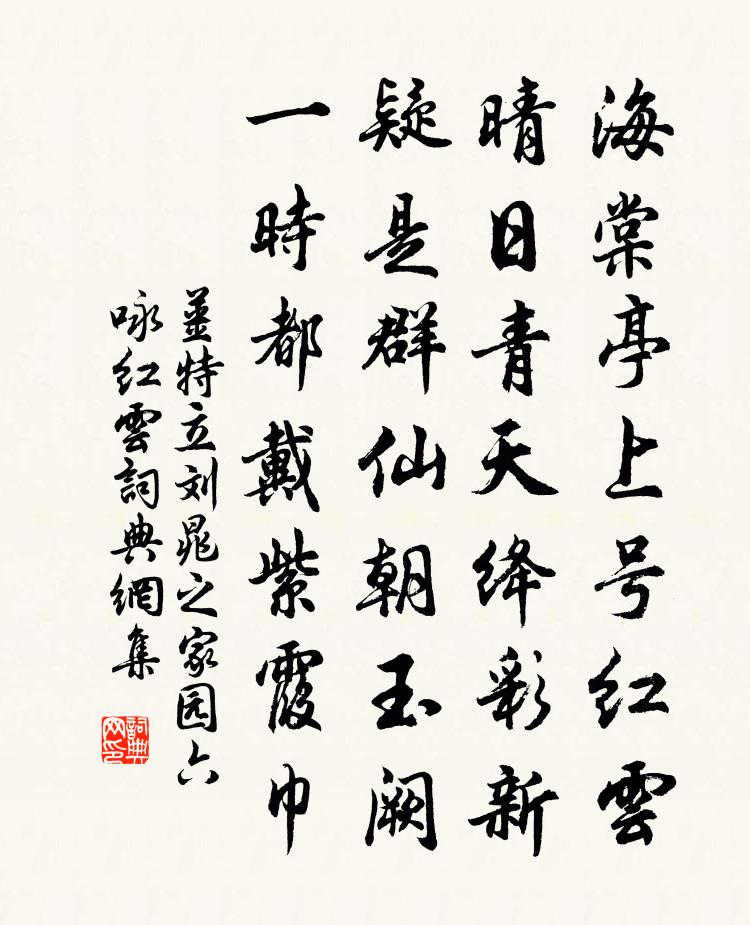 海棠亭上号红雲
晴日青天绛彩新
疑是群仙朝玉阙
一時都戴紫霞巾
姜特立刘晁之家园六
咏红雲詞典網集
詞典网印